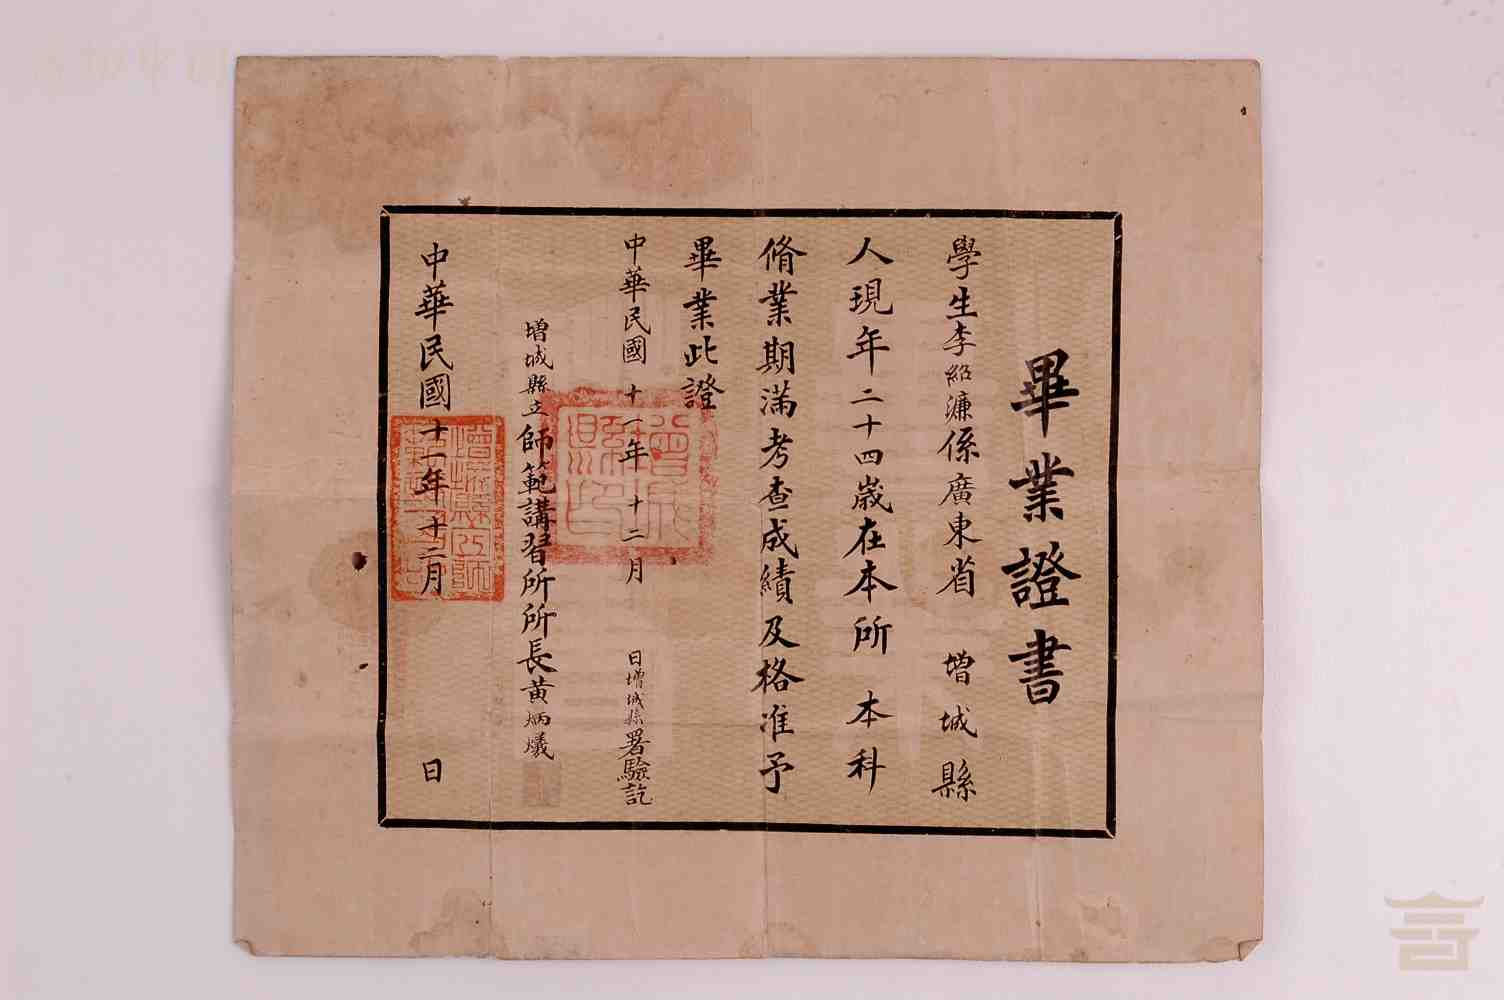 畢業證書
學生李紹濂係廣東省增城縣
人現年二十四歲在本所本科
脩業期滿考查成績及格准予
畢業此證
中華民國十一年十二月日增城縣署驗訖
增城縣立師範講習所所長黃炳爔
中華民國十一年十二月日
增城縣印